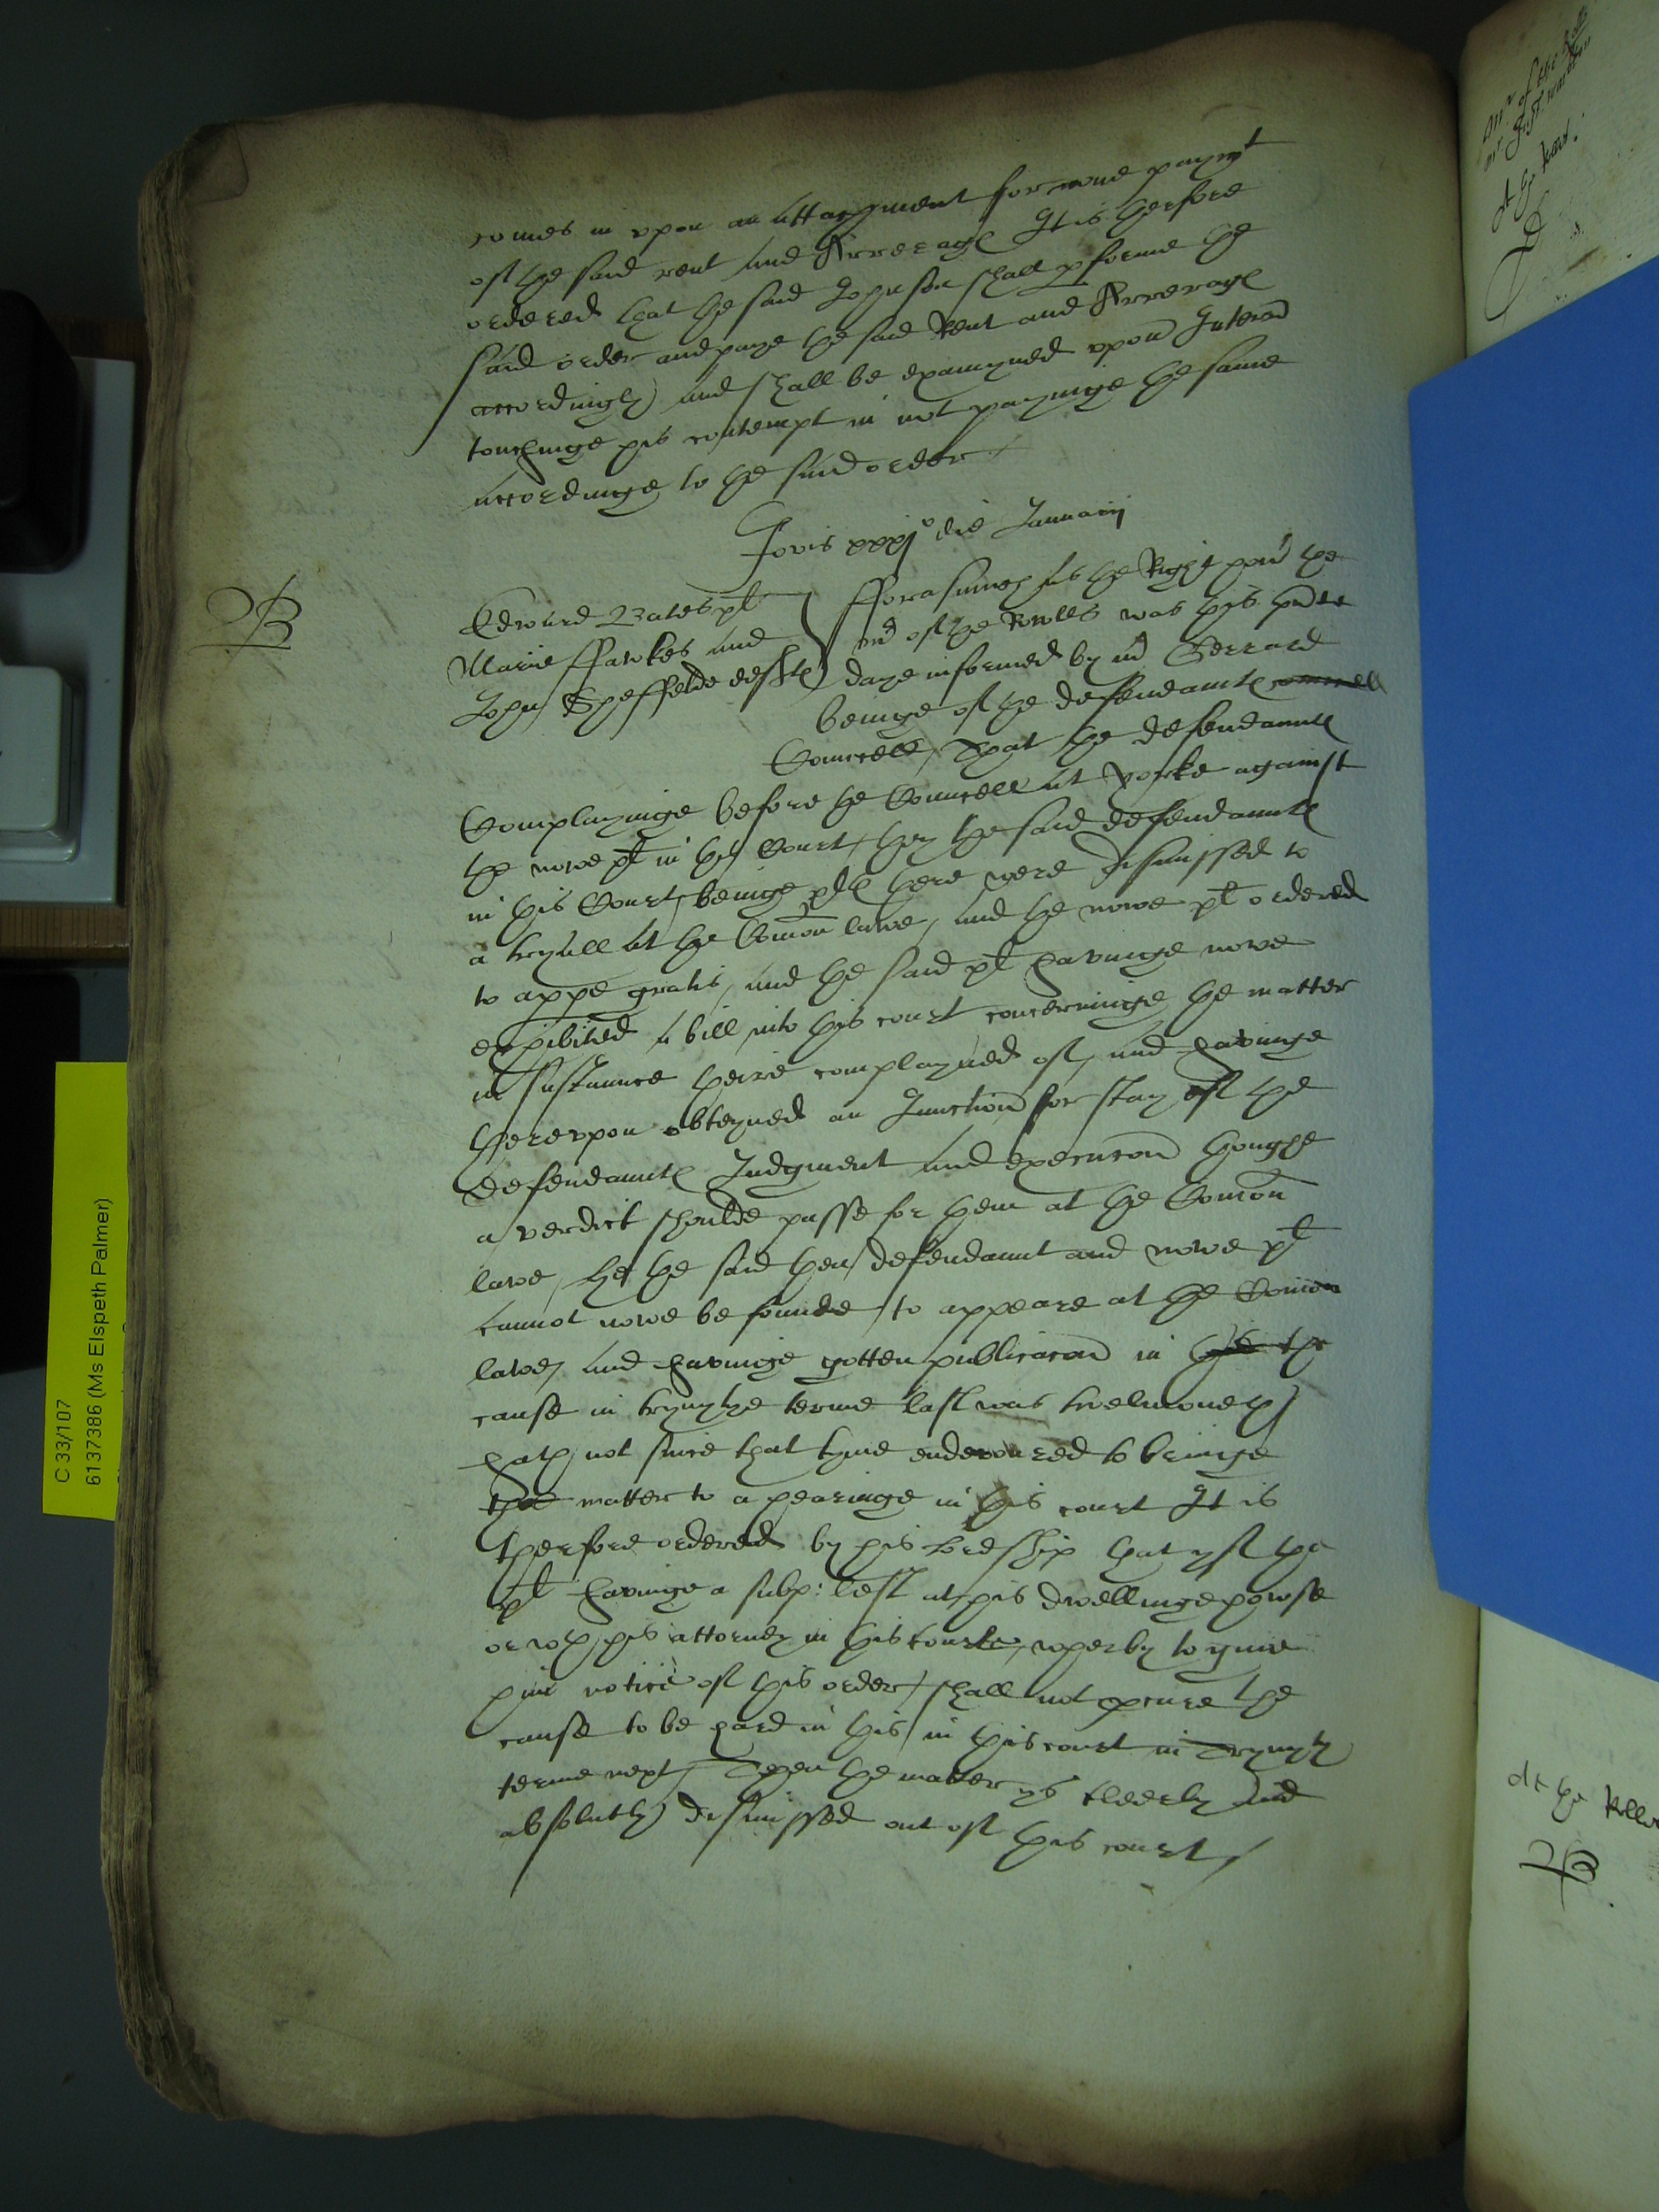 comes in vpon an Attachment for none paymt
of the said rent and Arrerages It is therfore
ordered that the said Johnson shall pforme the
said order and paye the said Rent and Arrerages
accordingly and shall be examyned vpon Interr
touchinge his contempt in not payinge the same
accordinge to the said order
Jovis xxxjo die Januarij
B
Edward Bates plt
Marie ffawkes and
John Sheffelde deftes
fforasmuch as the Right hon the
mr of the Rowlles was this psent
daye informed by mr Gerrard
beinge of the defendauntes councell
Councell, That the defendauntes
Complayninge before the Councell at Yorke against
the nowe plt in this Court, they the said defendauntes
in this Court, beinge ples there were dismissed to
a tryall at the Comon lawe, and the nowe plt ordered
to appe gratis, and the said plt havinge nowe
exhibited a bill into this court concerninge the matter
in substaunce there complayned of, and havinge
therevpon obteyned an Iniunction for stay of the
defendauntes Judgment and execucon thoughe
a verdict shoulde passe for them at the Comon
lawe, yet the said then defendaunt and nowe plt
cannot nowe be founde to appeare at the Comon
lawe, and havinge gotten publicacon in the
cause in trynytye terme last was twelmoneth
hath not since that tyme endevoured to bringe
the matter to a hearinge in this court It is
therfore ordered by his Lordship that yf the
plt havinge a subp: left at his dwellinge howse
or wth his attorney in this courte, wherby to giue
him notice of this order, shall not pcure the
cause to be hard in this in this court in Trynyty
terme next, Then the matter ys cleerly and
absolutly dismissed out of this court
C 33/107
6137386 (Ms Elspeth Palmer)
mr of the Rolls